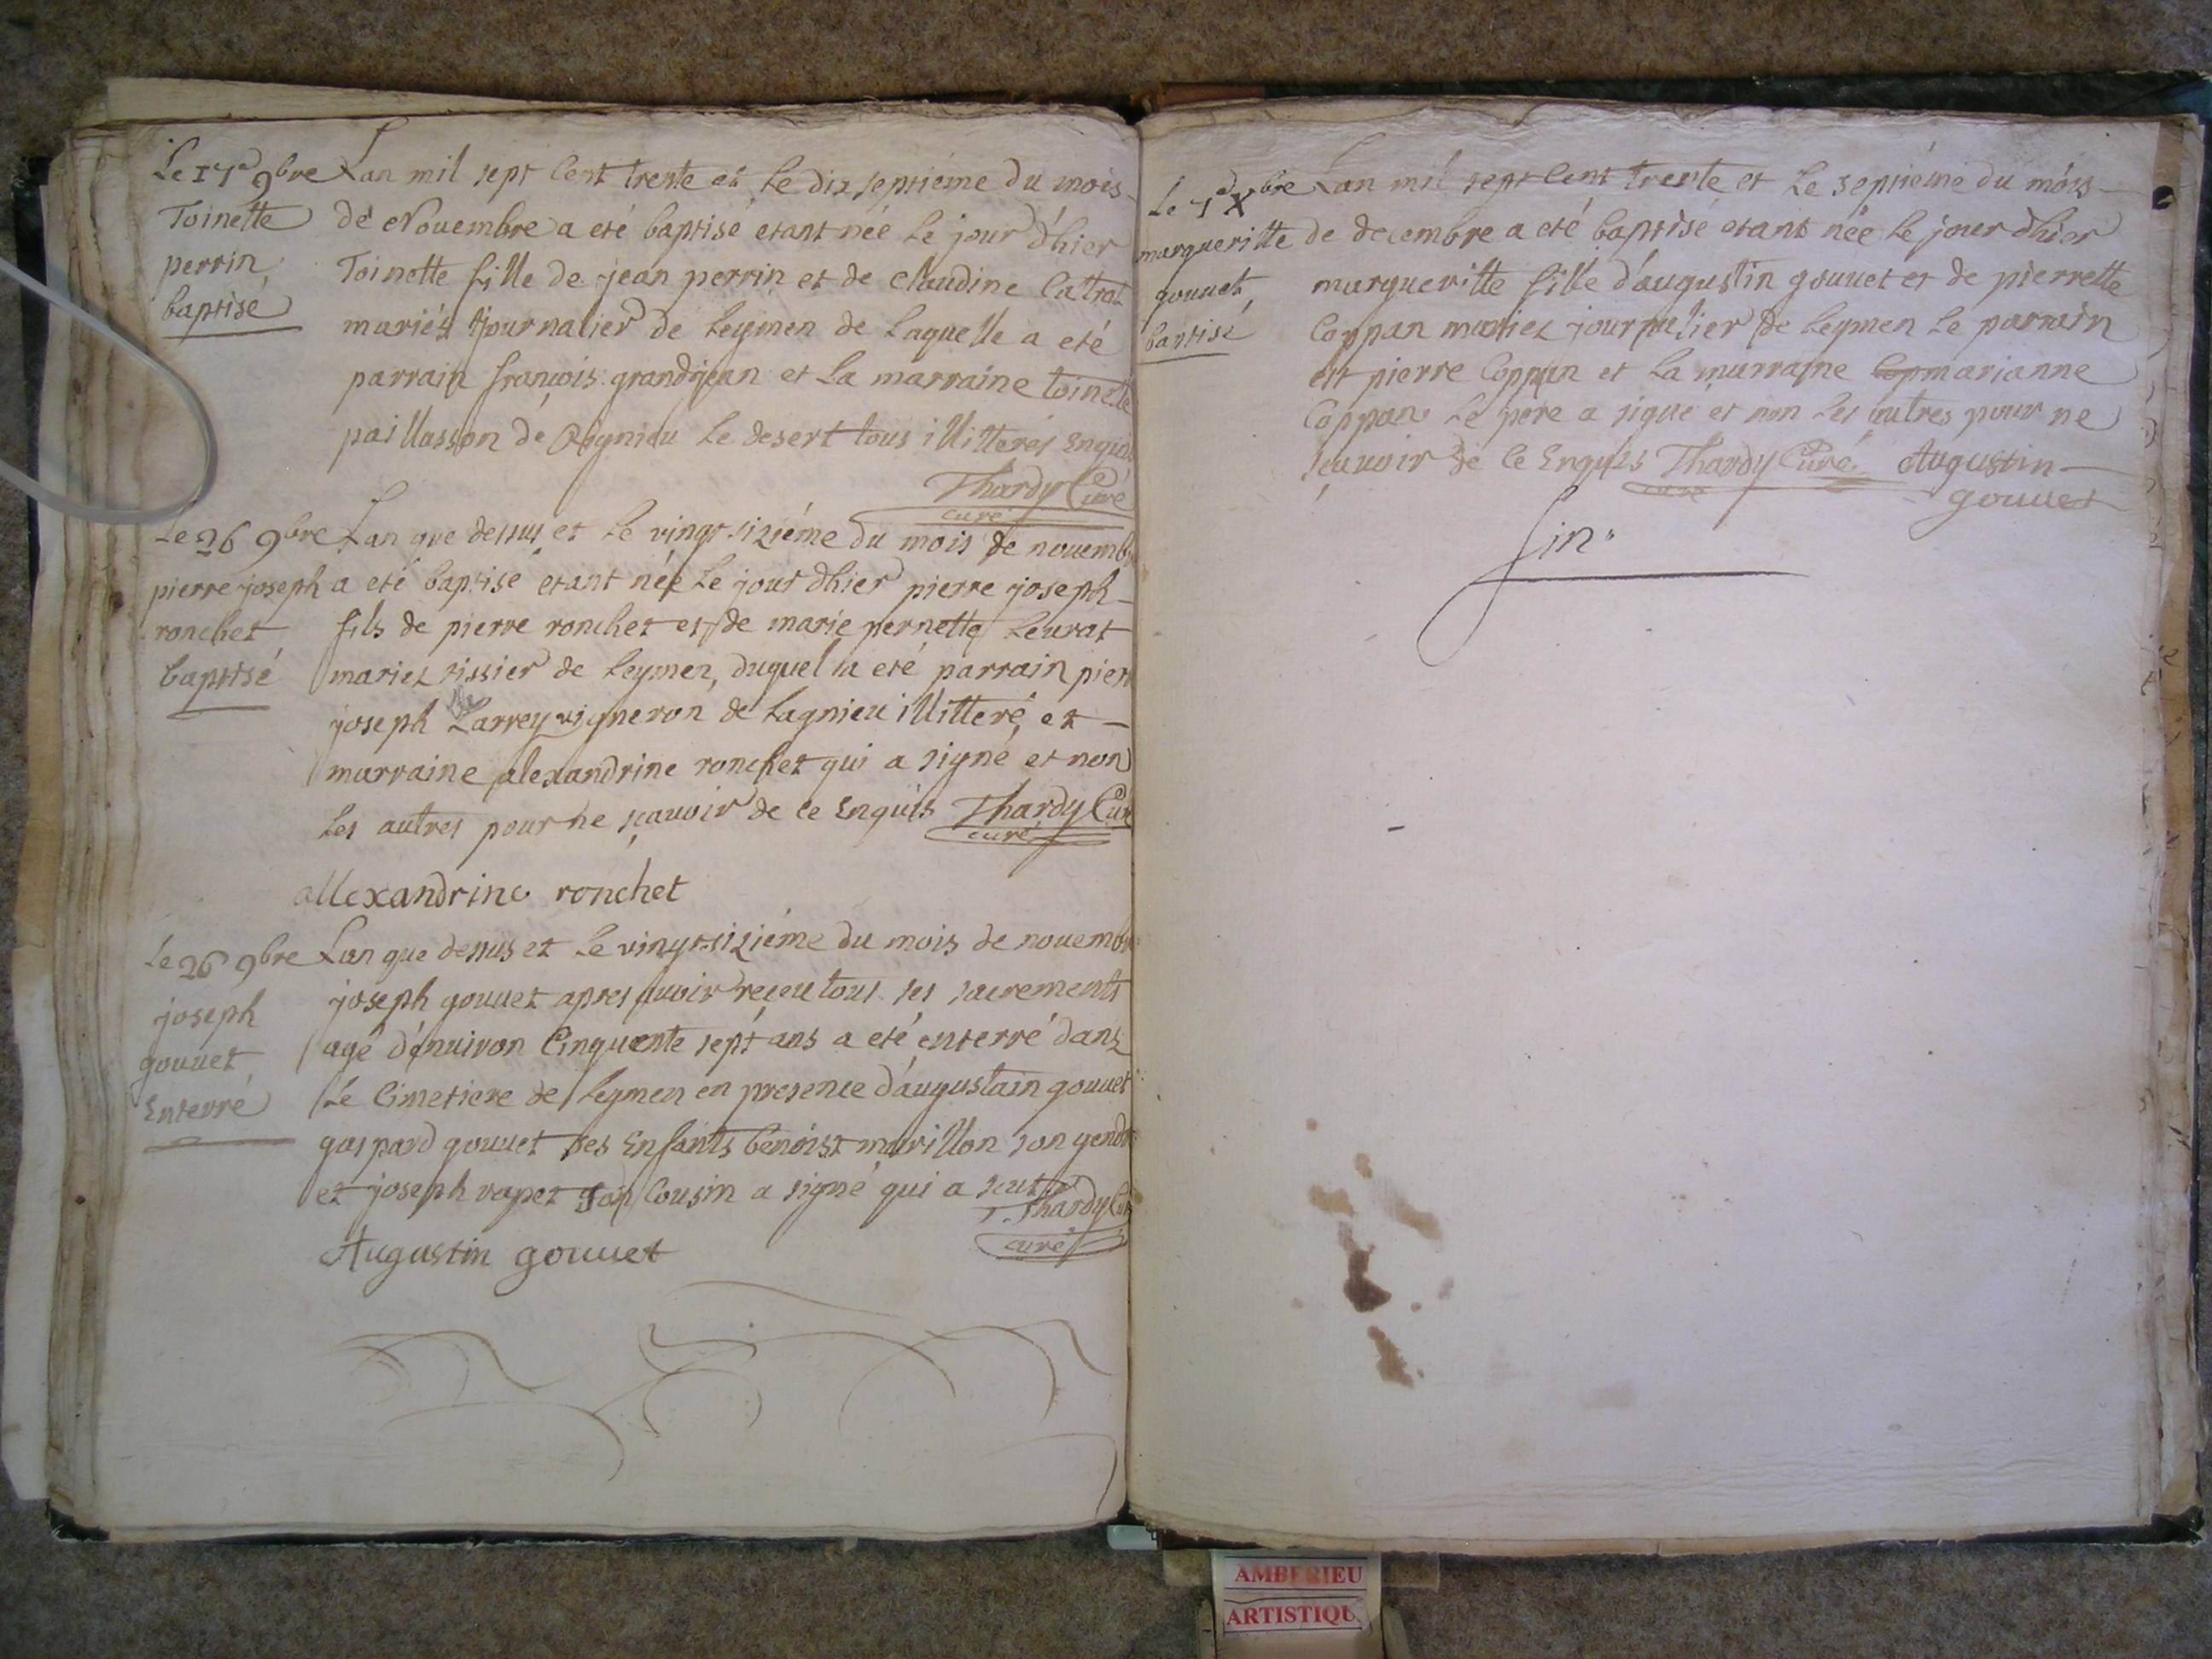 Le 17e 9bre
Toinette
perrin
baptisé
Lan mil sept Cent trente et Le dix septiéme du mois
de Nouembre a eté baptisé etant née Le jour d'hier
Toinette fille de jean perrin et de Claudine Catrat
mariés journalier de Leymen de Laquelle a eté
parrain françois grandjean et La marraine toinette
paillasson de Rignieu Le desert tous illitterés Enquis
Thardy Curé
curé
Le 26 9bre
pierre joseph
ronchet
baptisé
Lan que dessus et Le vingt sixiéme du mois de nouemb
a eté baptisé etant née Le jour dhier pierre joseph
fils de pierre ronchet et de marie pernette Leurat
mariez tissier de Leymen, duquel a eté parrain pier
joseph Larrey vigneron de Lagnieu illitteré, et
marraine alexandrine ronchet qui a signé et non
Les autres pour ne sçauoir de ce Enquis Thardy Cur
curé
allexandrine ronchet
Le 26 9bre
joseph
gouuet
Enterré
Lan que dessus et Le vingt sixiéme du mois de nouemb
joseph gouuet apres auoir reçeu tous ses sacrements
agé d'enuiron Cinquante sept ans a eté enterré dans
Le Cimetiere de Leymen en presence d'augustain gouuet
gaspard gouuet ses Enfants benoist marillon son gendr
et joseph vapet son Cousin a signé qui a sceut
Thardy Cur
curé
Augustin gouuet
Le 7 Xbre
margueritte
gouuet
baptisé
Lan mil sept Cent trente et Le septiéme du mois
de decembre a eté baptisé etant née Le jour dhier
margueritte fille d'augustin gouuet et de pierrette
Coppan mariez journalier de Leymen Le parrain
est pierre Coppan et La marraine Cop marianne
Coppan Le pere a signé et non Les autres pour ne
sçauoir de Ce Enquis Thardy Curé Augustin
curé gouuet
fin
AMBERIEU
ARTISTIQU